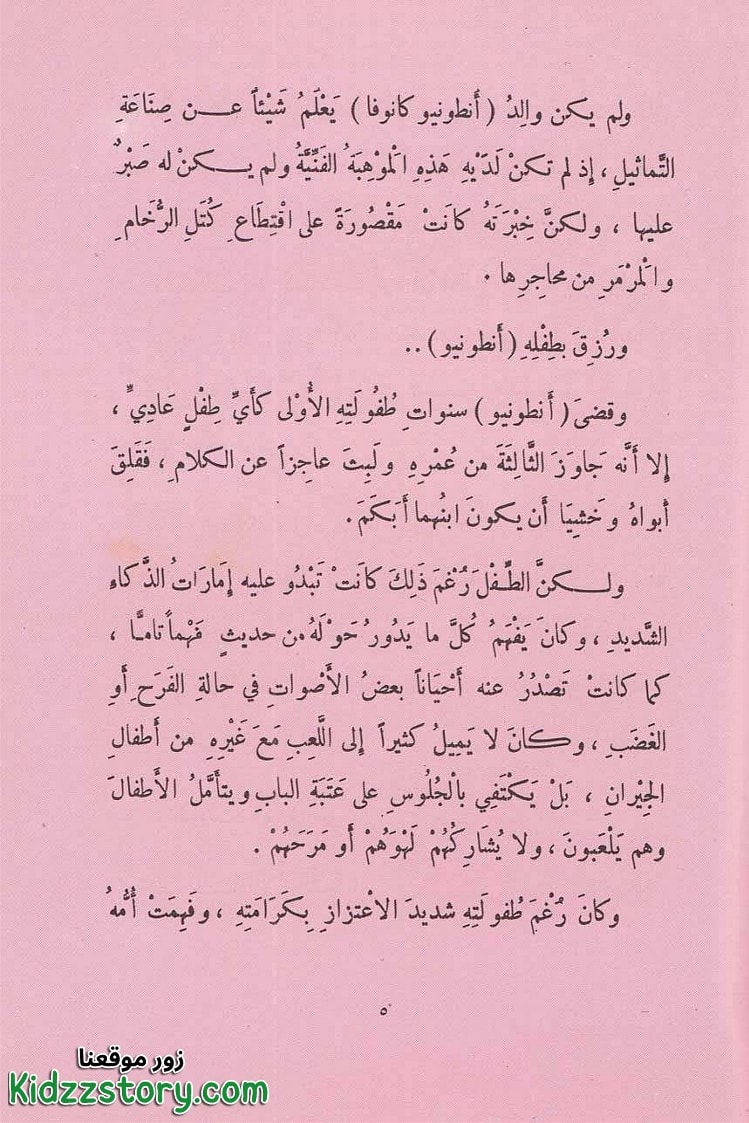 ولم يكن والِدُ ( أَنطونيو كانوفا ) يَعْلَمُ شَيْئاً عـن صِنَاعَةِ
التَّماثيلِ ، إِذ لم تكنْ لَدَيْهِ هَذِهِ الْموْهِبَةُ الفَنِّيَّةُ ولم يـكنْ له صَبْرٌ
عليها ، ولكنَّ خِبْرَتَهُ كانَتْ مَقْصُورَةً على اقْتِطَاعِ كُتَلِ الرُّخَامِ
والْمرْمَرِ من محاجِرِها .
ورُزِقَ بطِفْلِهِ ( أَنطونيو ) ..
وقضىَ ( أَنطونيو ) سنواتِ طُفُولَتِهِ الأُوْلى كأَيِّ طِفْلٍ عَادِيٍّ ،
إِلا أَنَّه جَاوَزَ الثَّالِثَةَ من عُمْرِهِ ولَبِثَ عاجِزاً عن الكلامِ ، فَقَلِقَ
أبواهُ وخَشِيَا أَن يكونَ ابنُهما أَبكَمَ .
ولـكنَّ الطِّفْلَ رُغْمَ ذَلِكَ كانَتْ تَبْدُو عليه إِمَارَاتُ الذَّكاءِ
الشَّديدِ ، وكانَ يَفْهَمُ كُلَّ ما يَدُورُ حَوْلَهُ من حديثٍ فَهْماً تامًّا ،
كما كانتْ تَصْدُرُ عنه أَحْيَاناً بعضُ الأَصْواتِ في حالةِ الفَرَحِ أَوِ
الغَضَبِ ، وكانَ لا يَمِيلُ كثيراً إلى اللَّعِبِ مَعَ غَيْرِهِ من أَطفالِ
الجيْرانِ ، بَلْ يَكْتَفِي بالْجُلُوسِ على عَتَبَةِ البابِ ويتأَمَّلُ الأَطفالَ
وهم يَلْعَبونَ ، ولا يُشَارِكُهُمْ لَهْوَهُمْ أَو مَرَحَهُمْ .
وكانَ رُغْمَ طُفولَتِهِ شديدَ الاْعْتزازِ بِكَرَامَتِهِ ، وفَهِمَتْ أُمُّهُ
٥
زور موقعنا
Kidzzstory.com